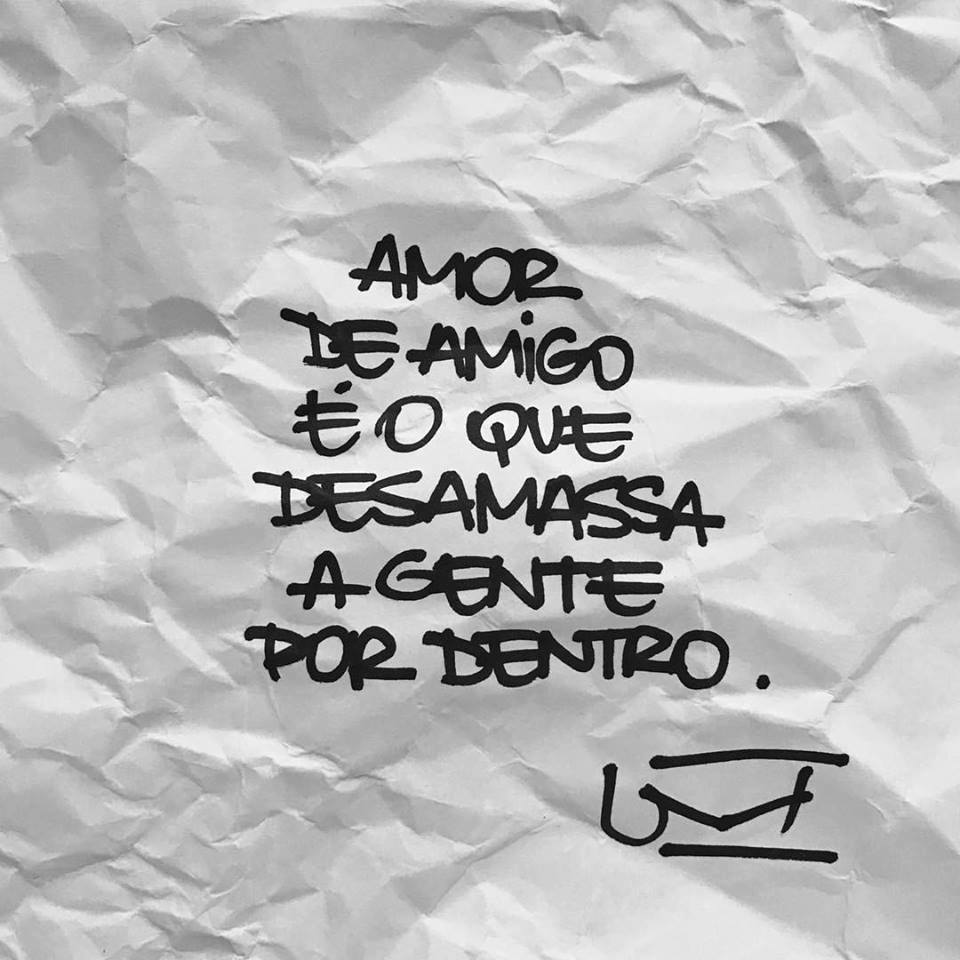 AMOR
DE AMiGO
É O QUE
DESAMASSA
A GENTE
POR DENTRO.